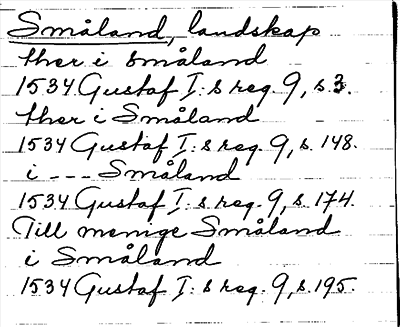 Småland, landskap
ther i småland
1534 Gustaf I:s reg. 9, s. 3.
ther i Småland
1534 Gustaf I:s reg. 9, s. 148.
i --- Småland
1534 Gustaf I:s reg. 9, s. 174.
Till menige Småland
i Småland
1534 Gustaf I:s reg. 9, s. 195.